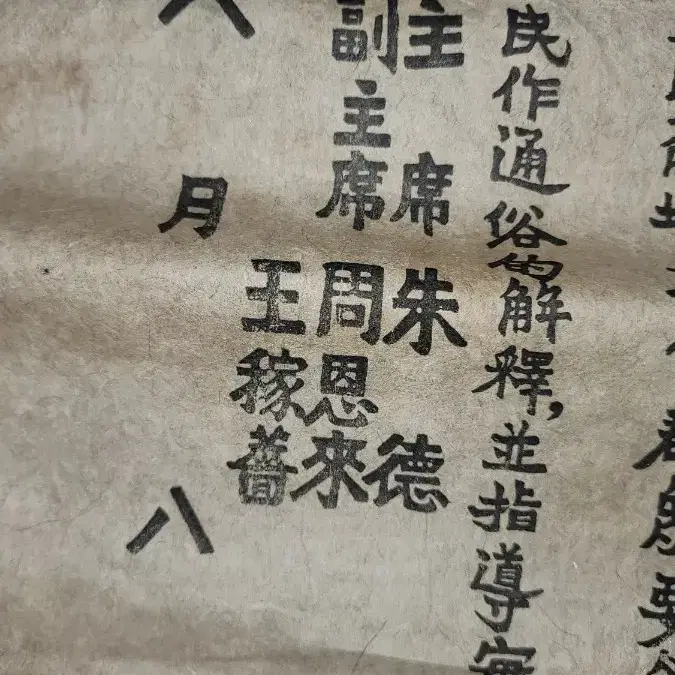 群眾要
民作通俗的解釋,並指導實
主席 朱德
副主席 周恩來
王稼薔
月八